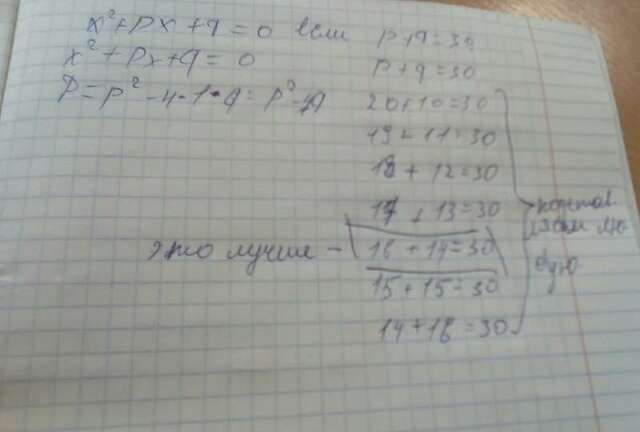 x²+px+q=0 если p+q=30
x²+px+q=0
p+q=30
D=p²-4·1·q=p²-4q
20+10=30
19+11=30
18+12=30
17+13=30
это лучше - 16+14=30
15+15=30
14+16=30
подставляем лю
бую